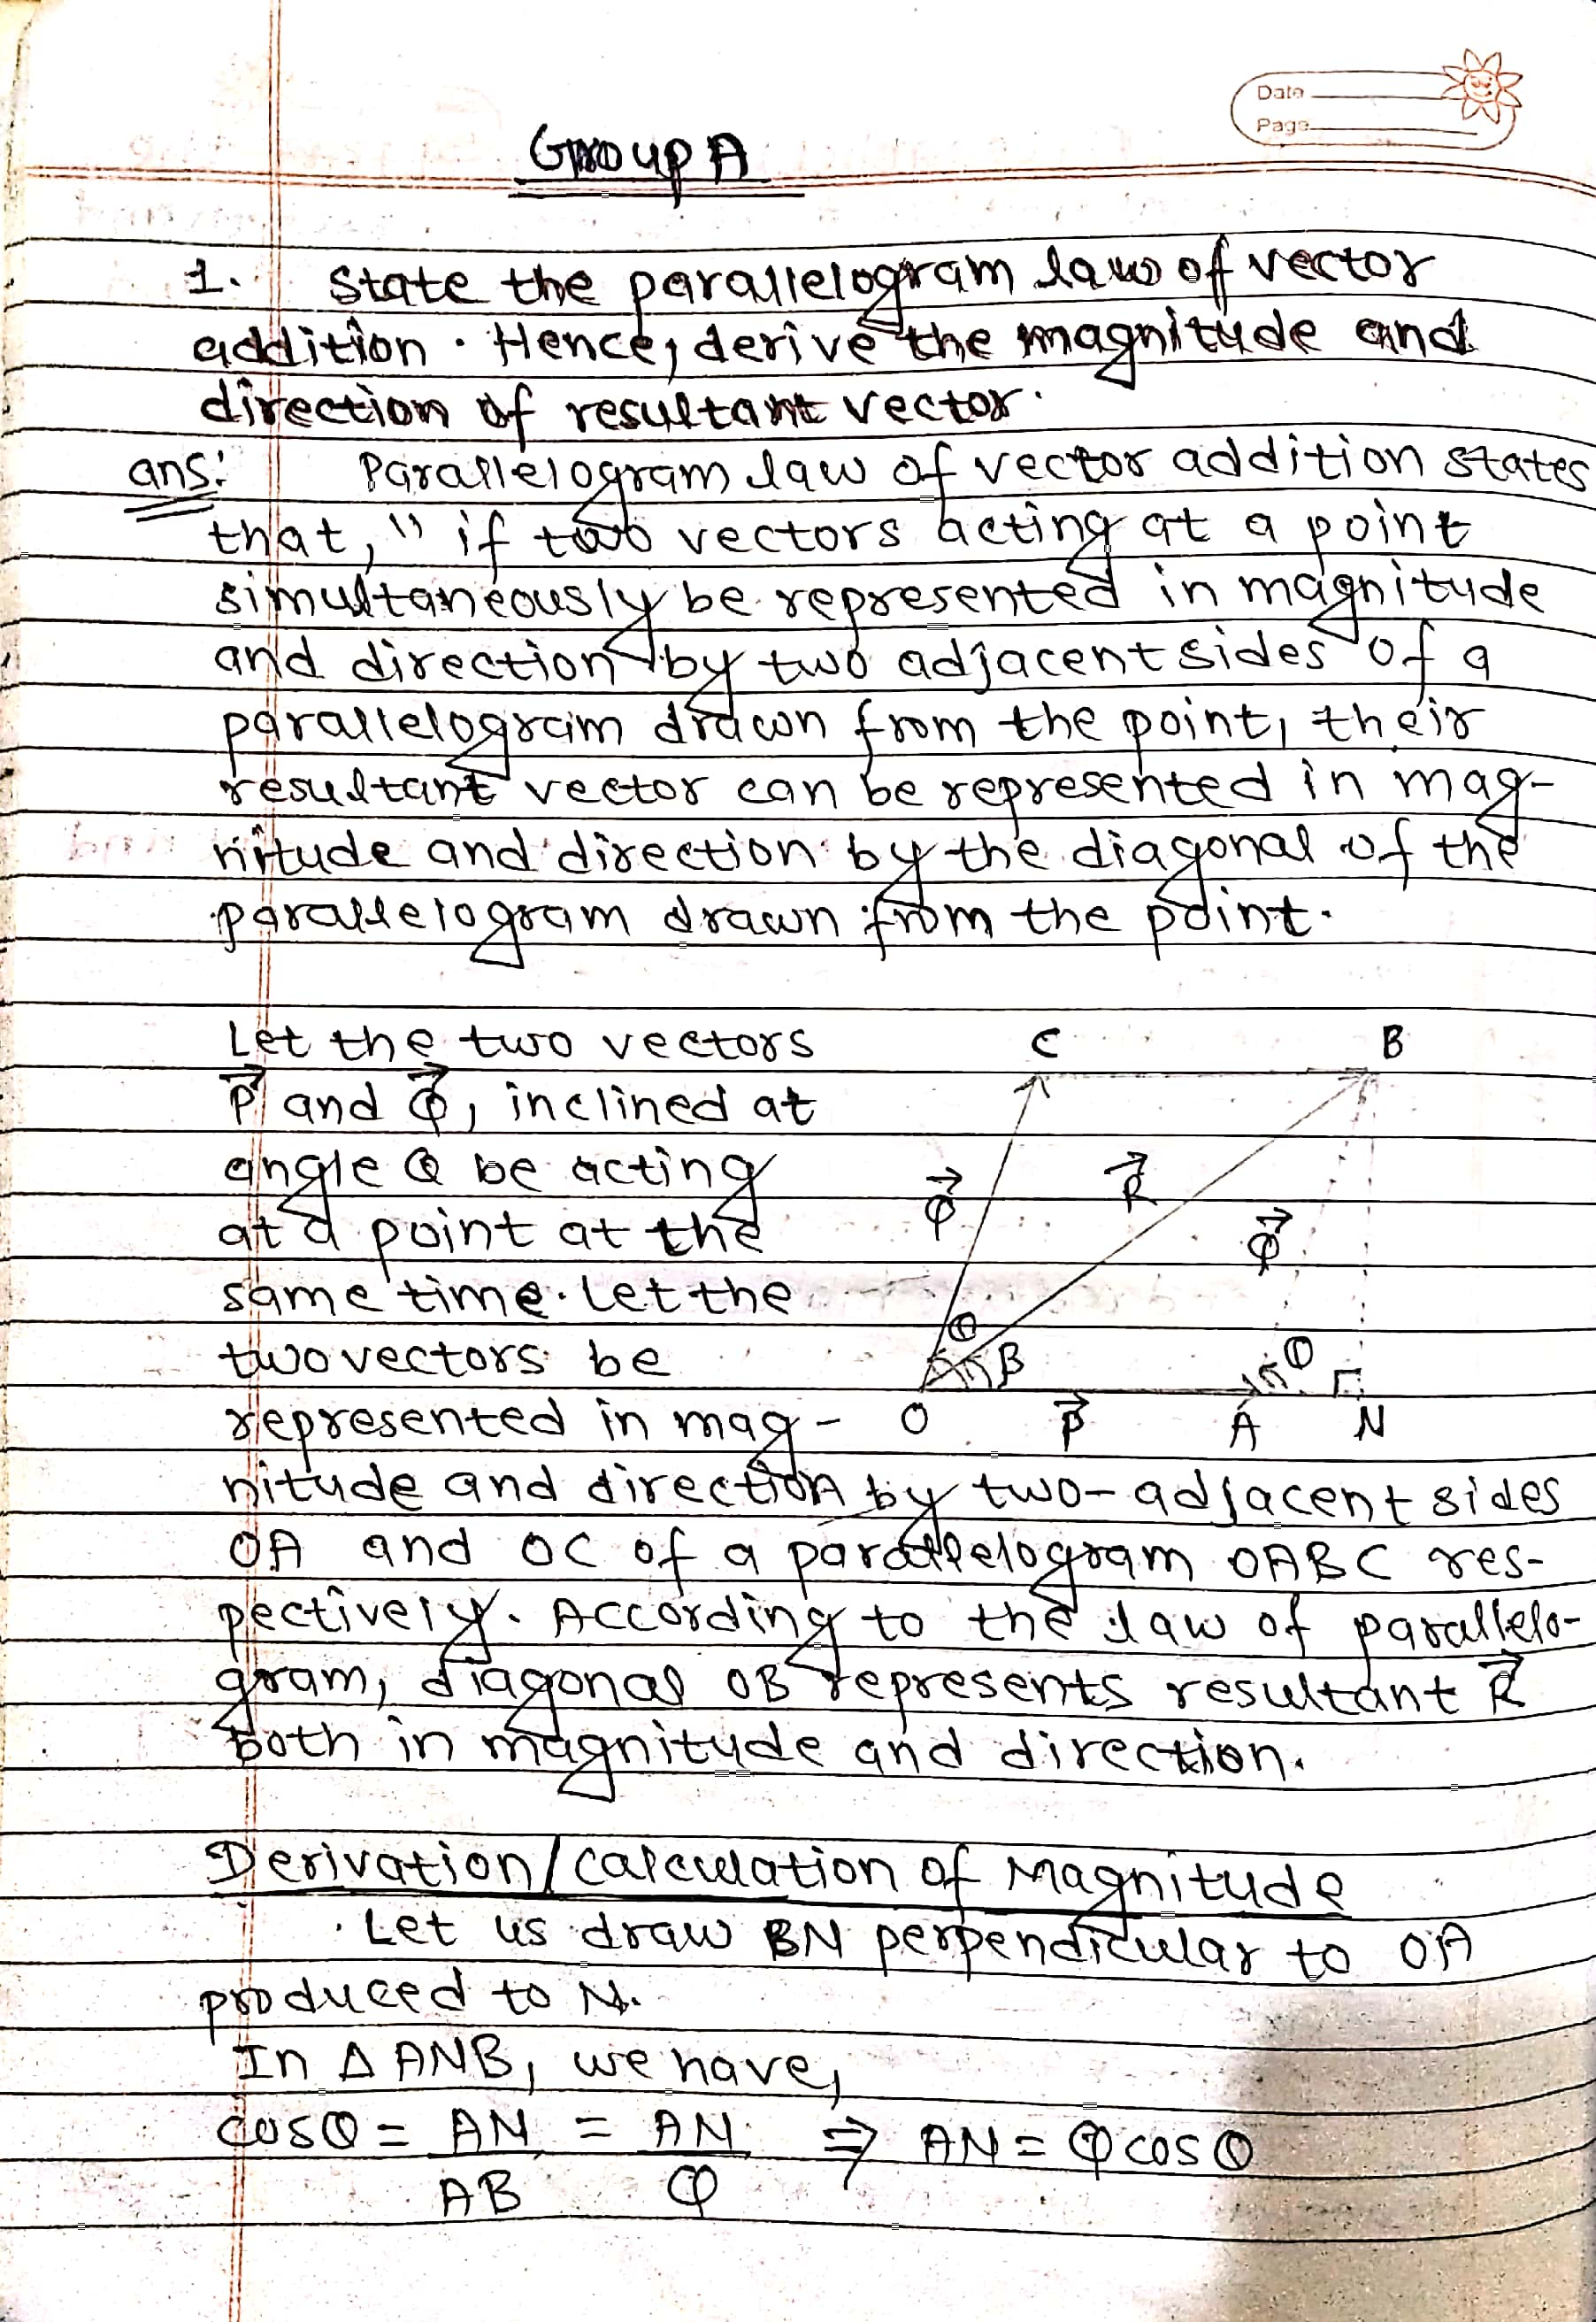 Date
Page
Group A
1. State the parallelogram law of vector
addition. Hence, derive the magnitude and
direction of resultant vector.
ans: Parallelogram law of vector addition states
that, " if two vectors acting at a point
simultaneously be represented in magnitude
and direction by two adjacent sides of a
parallelogram drawn from the point, their
resultant vector can be represented in mag-
nitude and direction by the diagonal of the
parallelogram drawn from the point.
Let the two vectors
P⃗ and Q⃗, inclined at
angle θ be acting
at a point at the
same time. Let the
two vectors be
represented in mag-
C B
Q⃗ R⃗
Q⃗
θ
β θ
O P⃗ A N
nitude and direction by two-adjacent sides
OA and OC of a parallelogram OABC res-
pectively. According to the law of parallelo-
gram, diagonal OB represents resultant R⃗
both in magnitude and direction.
Derivation/Calculation of Magnitude
Let us draw BN perpendicular to OA
produced to N.
In Δ ANB, we have,
cosθ = AN = AN ⇒ AN = Q cosθ
AB Q